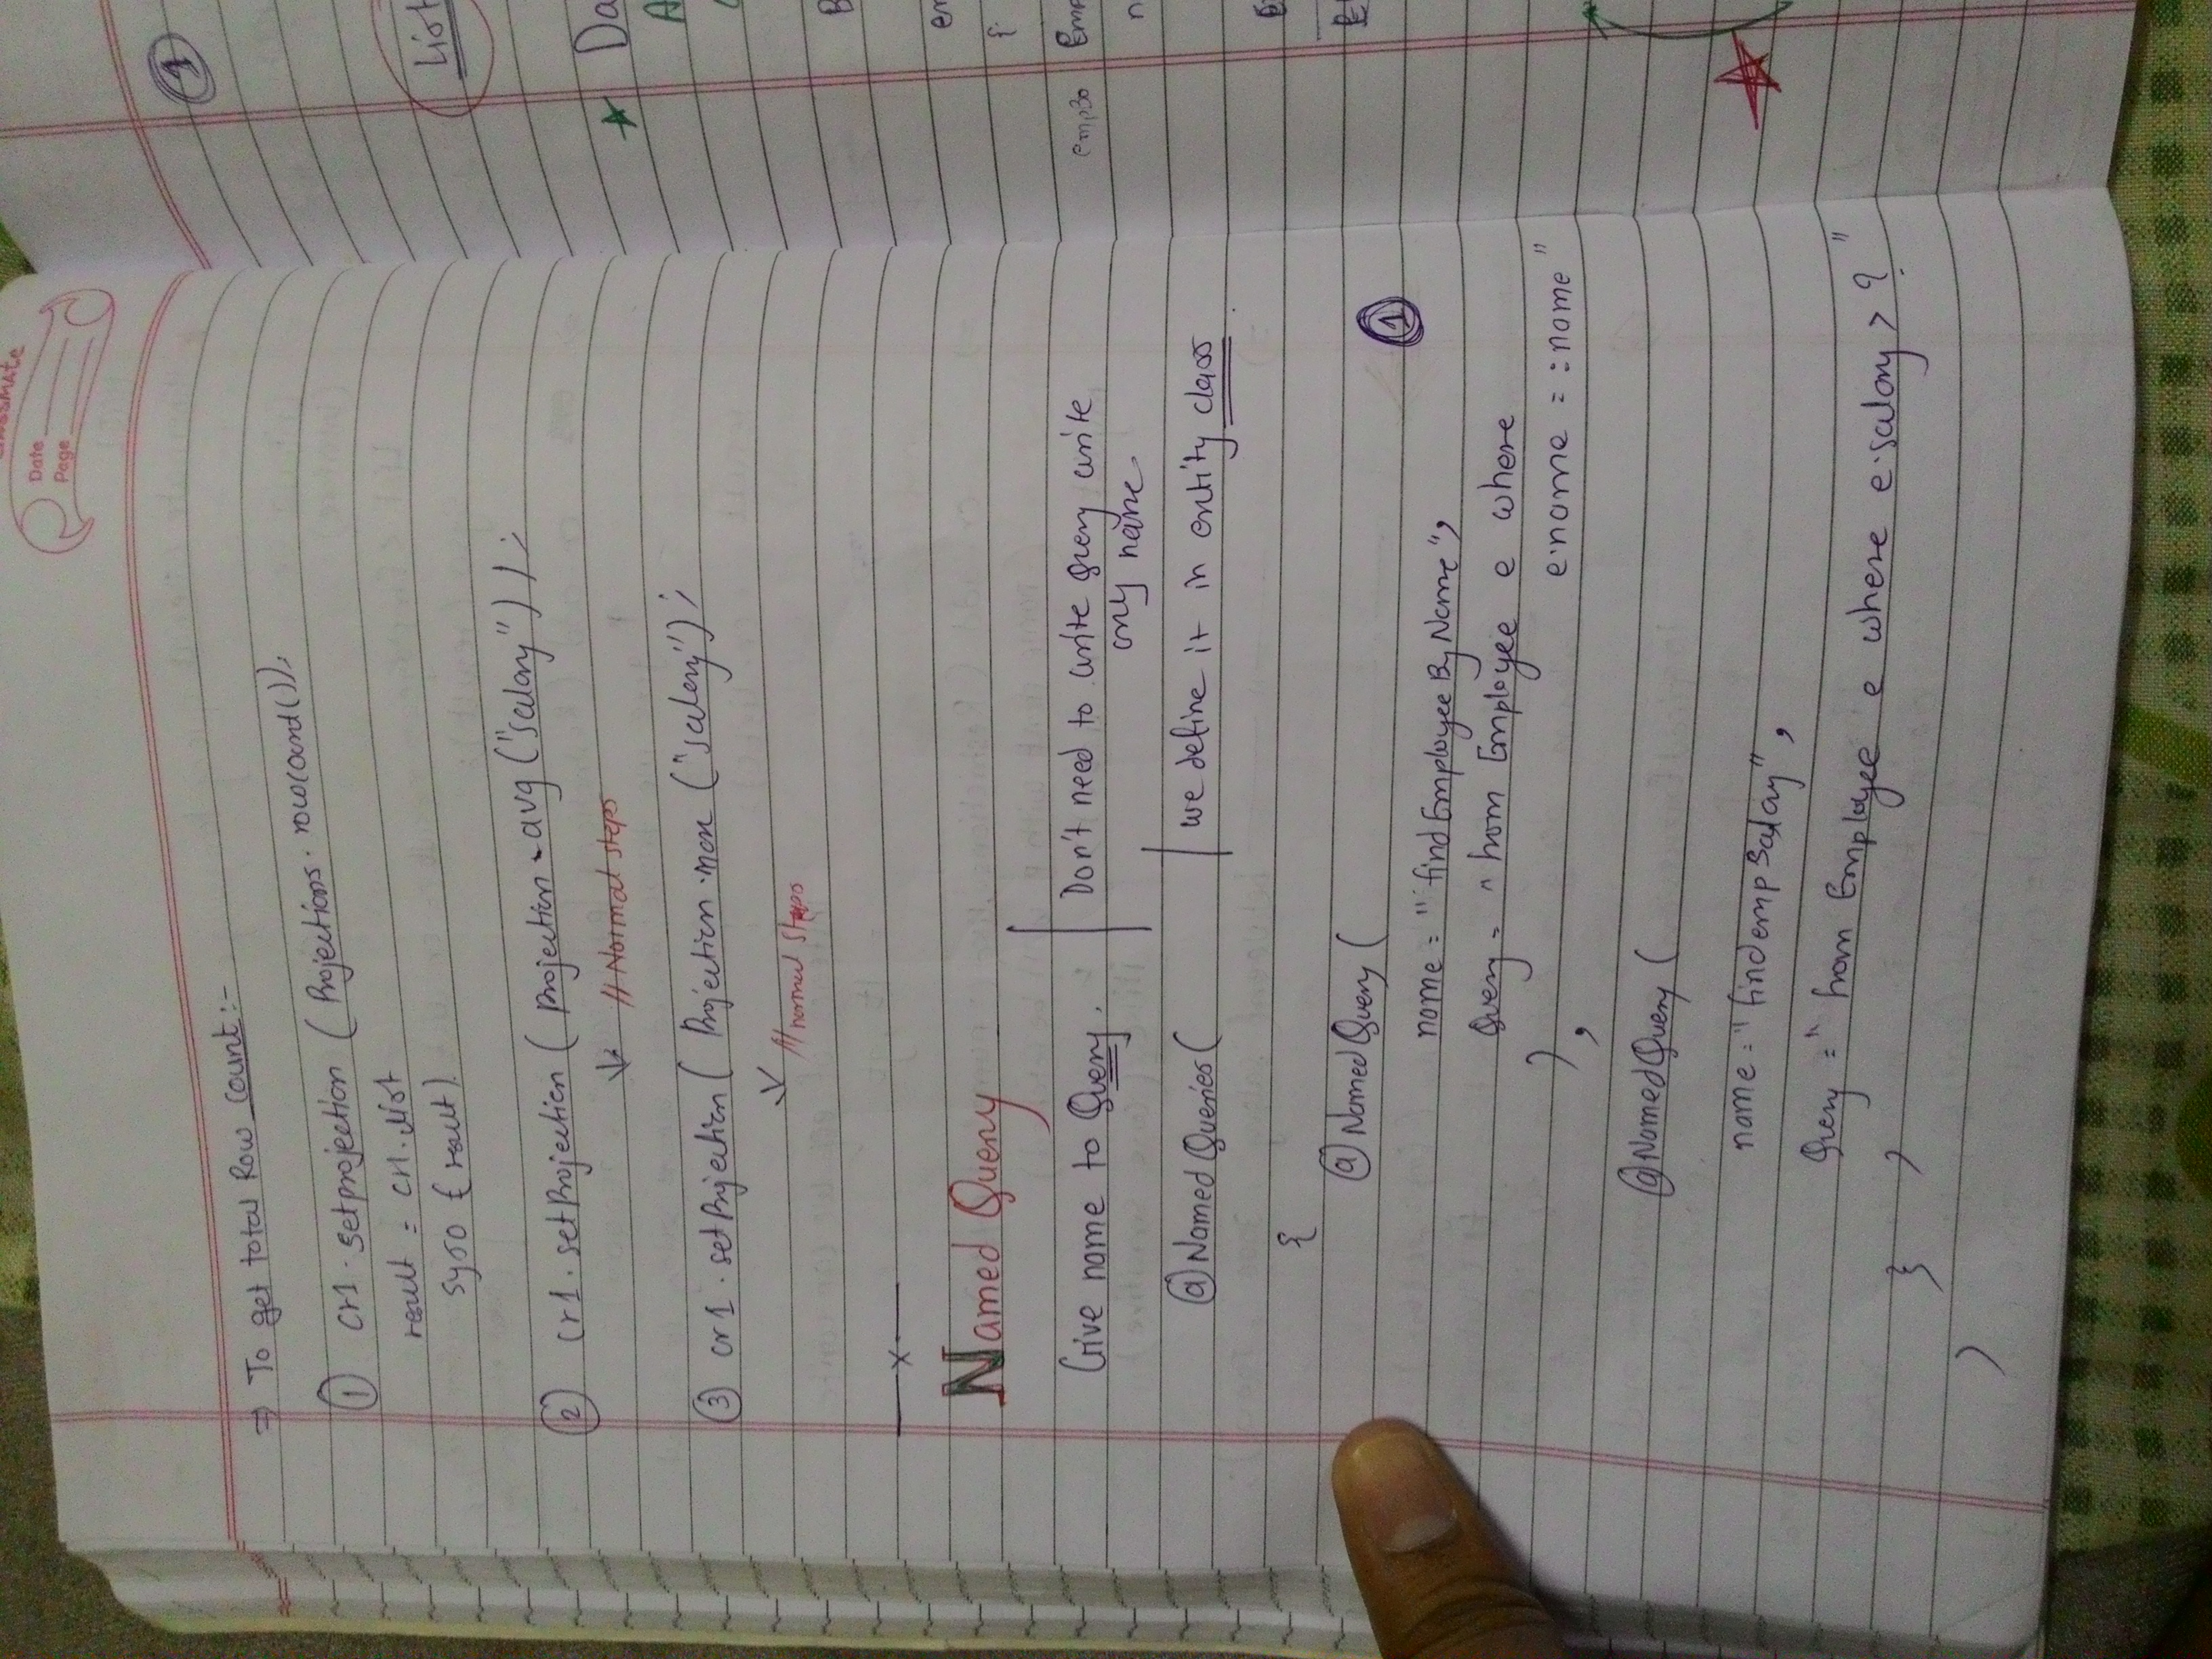 classmate
Date
Page
⇒ To get total Row count:-
① cr1.setprojection (Projections.rowcount());
result = cr1.list
syso (result)
② cr1.setProjection ( projection.avg ("salary") ) ;
↓ // Normal steps
③ cr1.setProjection ( Projection.max ("salary") ;
↓ // normal steps
—x—
Named Query
Give name to Query. | Don't need to write query write
only name
@NamedQueries( | we define it in entity class.
{
@NamedQuery (
①
name = "findEmployeeByName",
Query = "from Employee e where
e.name = :name"
),
@NamedQuery (
name = "findempSalay",
Query = "from Employee e where e.salary > ?"
} )
)
①
List
★ Da
A
B
er
{
emp30 Emp
n
E